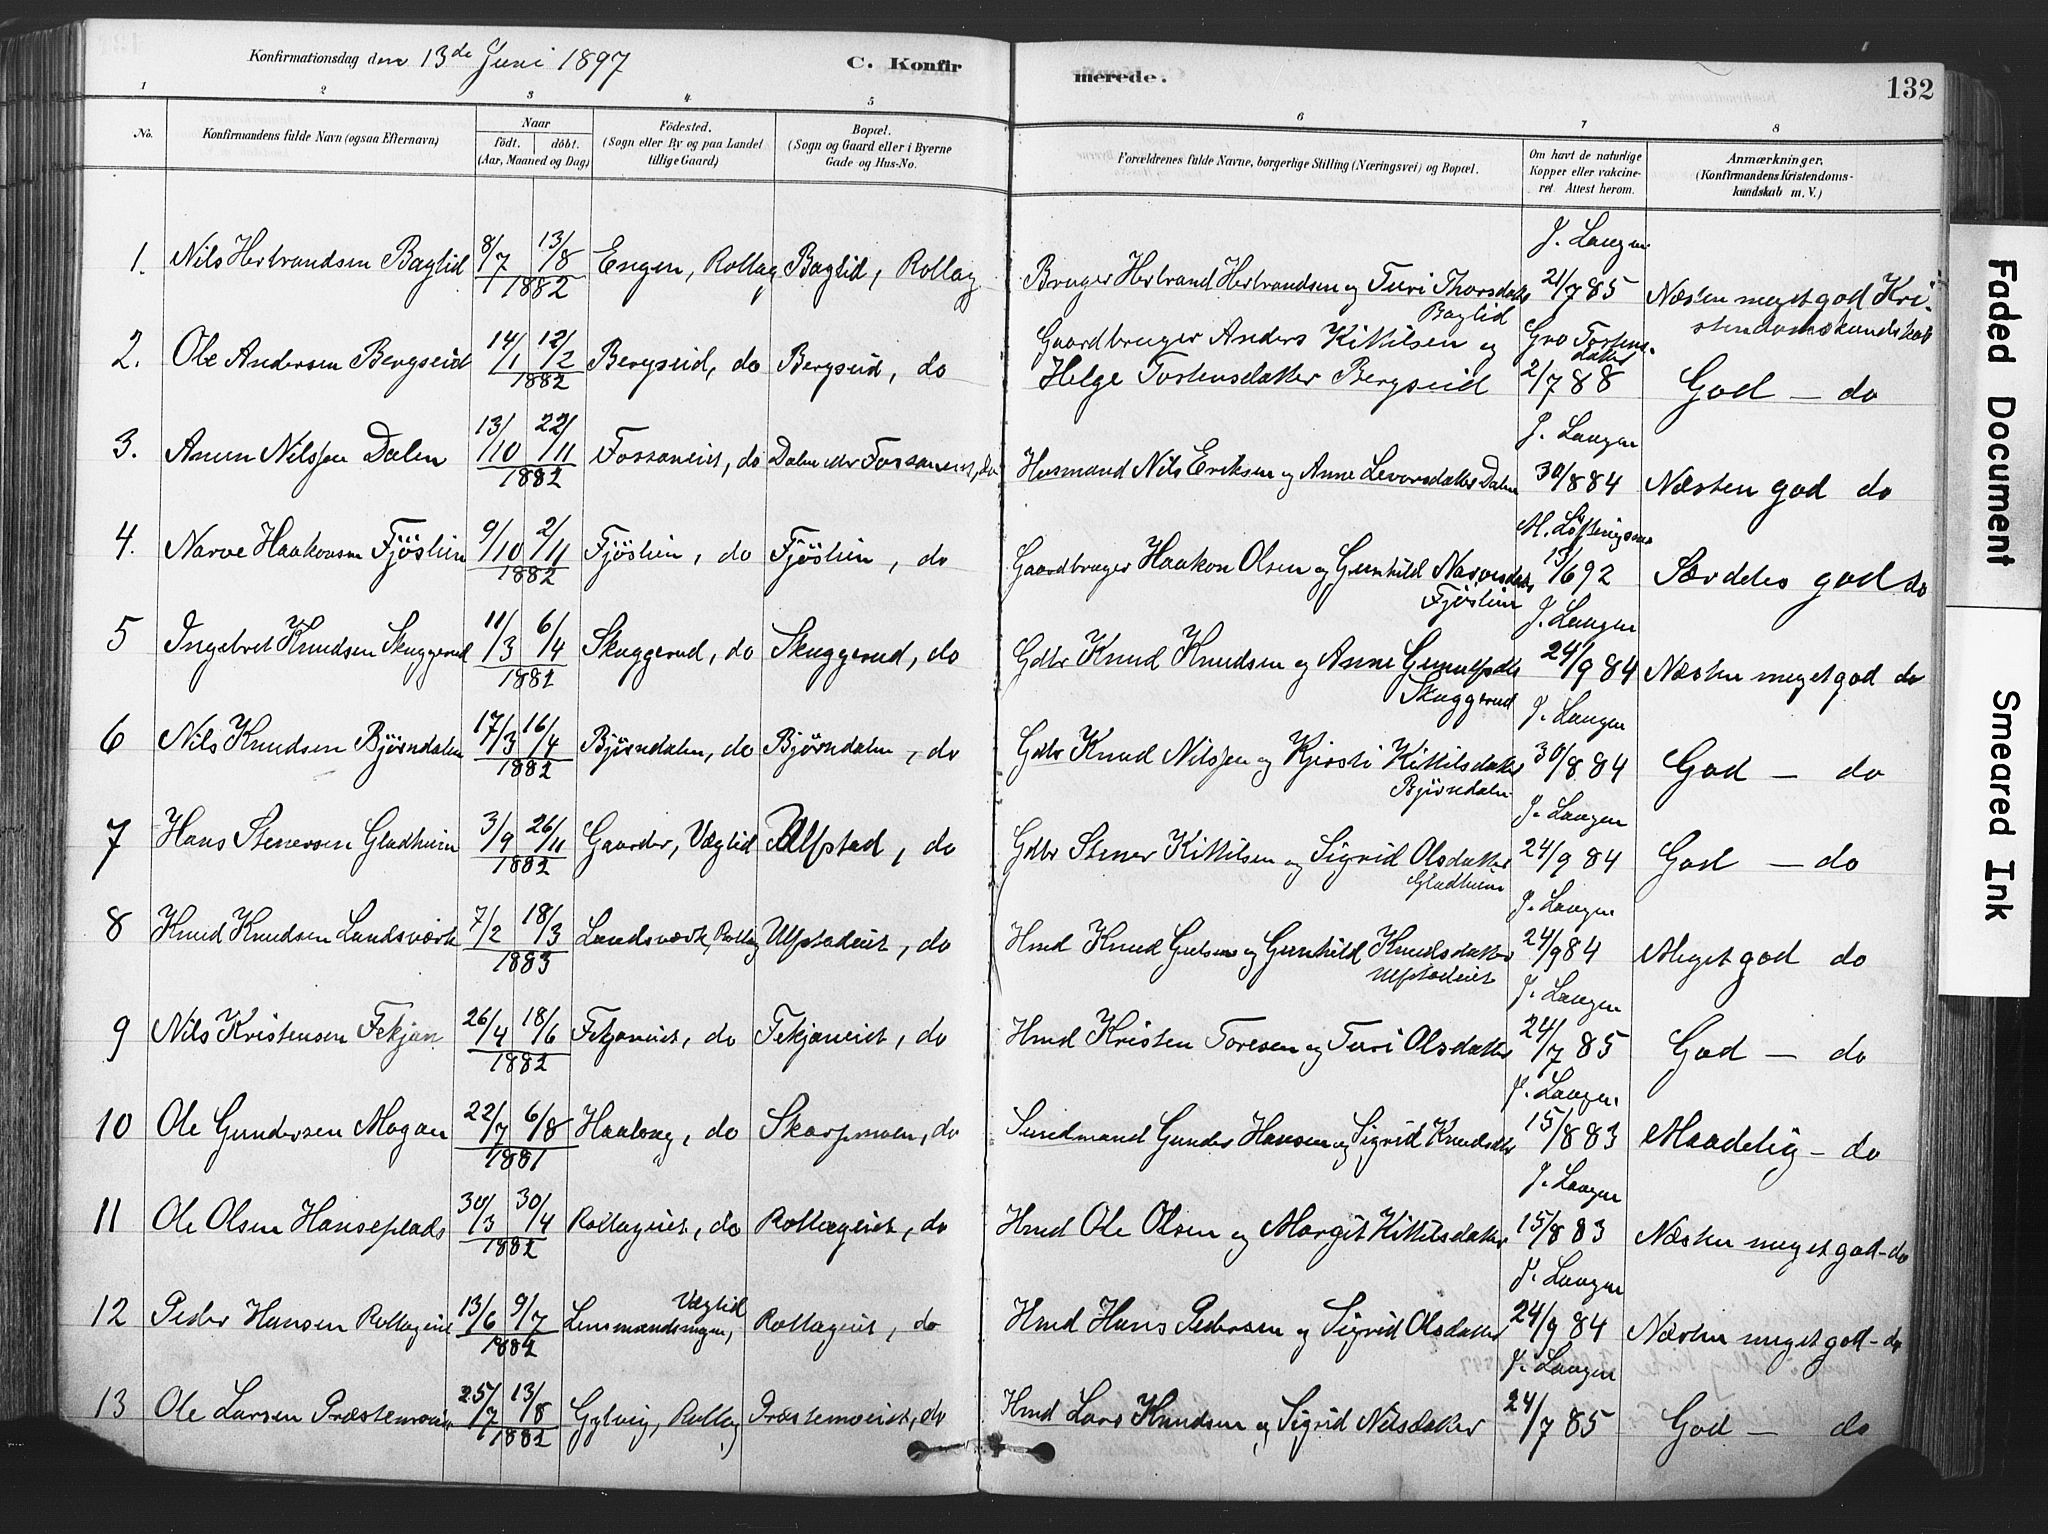 Konfirmationsdag den 13de Juni 1897 C. Konfirmerede. 132
1 2 3 4 5 6 7 8
No. Konfirmandens fulde Navn (ogsaa Efternavn) Naar født. døbt. (Aar, Maaned og Dag) Fødested. (Sogn eller By og paa Landet tillige Gaard) Bopæl. (Sogn og Gaard eller i Byerne Gade og Hus-No. Forældrenes fulde Navne, borgerlige Stilling (Næringsvei) og Bopæl. Om havt de naturlige Kopper eller vaccineret. Attest herom. Anmærkninger. (Konfirmandens Kristendomskundskab m. V.)
1. Nils Herbrandsen Baglid 8/7 13/8 1882 Engen, Rollag Baglid, Rollag Bruger Herbrand Herbrandsen og Turi Thorsdatter Baglid J. Laagen 21/7 85 Næsten meget god Kristendomskundskab
2. Ole Andersen Bergseid 14/1 12/2 1882 Bergseid, do Bergseid, do Gaardbruger Anders Kittilsen og Helge Tostensdatter Bergseid Gro Tostensdatter 2/7 88 God — do
3. Anun Nilssen Dalen 13/10 22/11 1882 Fossaneiet, do Dalen Fossaneiet, do Husmand Nils Eriksen og Anne Leversdatter Dalen J. Laagen 30/8 84 Næsten god do
4. Narve Haakonsen Fjöslien 9/10 2/11 1882 Fjöslien, do Fjöslien, do Gaardbruger Haakon Olsen og Gunhild Narvesdatter Fjöslien 13/6 92 Særdeles god do
5 Ingebret Knudsen Skuggerud 11/3 6/4 1882 Skuggerud, do Skuggerud, do Gdbr Knud Knudsen og Anne Gunulfsdtr Skuggerud J. Laagen 24/9 84 Næsten meget god do
6 Nils Knudsen Björndalen 17/3 16/4 1882 Björndalen, do Björndalen, do Gdbr Knud Nilssen og Kjersti Kittilsdatter Björndalen J. Laagen 30/8 84 God — do
7 Hans Stenersen Gladheim 3/9 26/11 1882 Gaarder, Veglid Ulfstad, do Gdbr Stener Kittilsen og Sigrid Olsdatter Gladheim J. Laagen 24/9 84 God — do
8 Knud Knudsen Landsværk 7/2 18/3 1883 Landsværk, Rollag Ulfstadeiet, do Hmd Knud Gulsen og Gunhild Knudsdatter Ulfstadeiet J. Laagen 24/9 84 Meget god do
9 Nils Kristensen Fekjan 26/4 18/6 1882 Fekjaneiet, do Fekjaneiet, do Hmd Kristen Toresen og Turi Olsdatter J. Laagen 24/7 85 God — do
10 Ole Gundersen Mogan 22/7 6/8 1881 do Skarpmoen, do Gunder Hansen og Sigrid Knudsdtr J. Laagen 15/8 83 Maadelig — do
11 Ole Olsen Hanseplads 30/3 30/4 1882 Rollageiet, do Rollageiet, do Hmd Ole Olsen og Margit Kittilsdatter J. Laagen 15/8 83 Næsten meget god — do
12 Peder Hansen Rollageiet 13/6 9/7 1882 Lensmandsengen, Veglid Rollageiet, do Hmd Hans Pedersen og Sigrid Olsdatter J. Laagen 24/9 84 Næsten meget god — do
13 Ole Larsen Præstemoeiet 25/7 13/8 1882 Rollag Præstemoeiet, do Hmd Lars Knudsen og Sigrid Nilsdatter J. Laagen 24/7 85 God — do
Faded Document
Smeared Ink